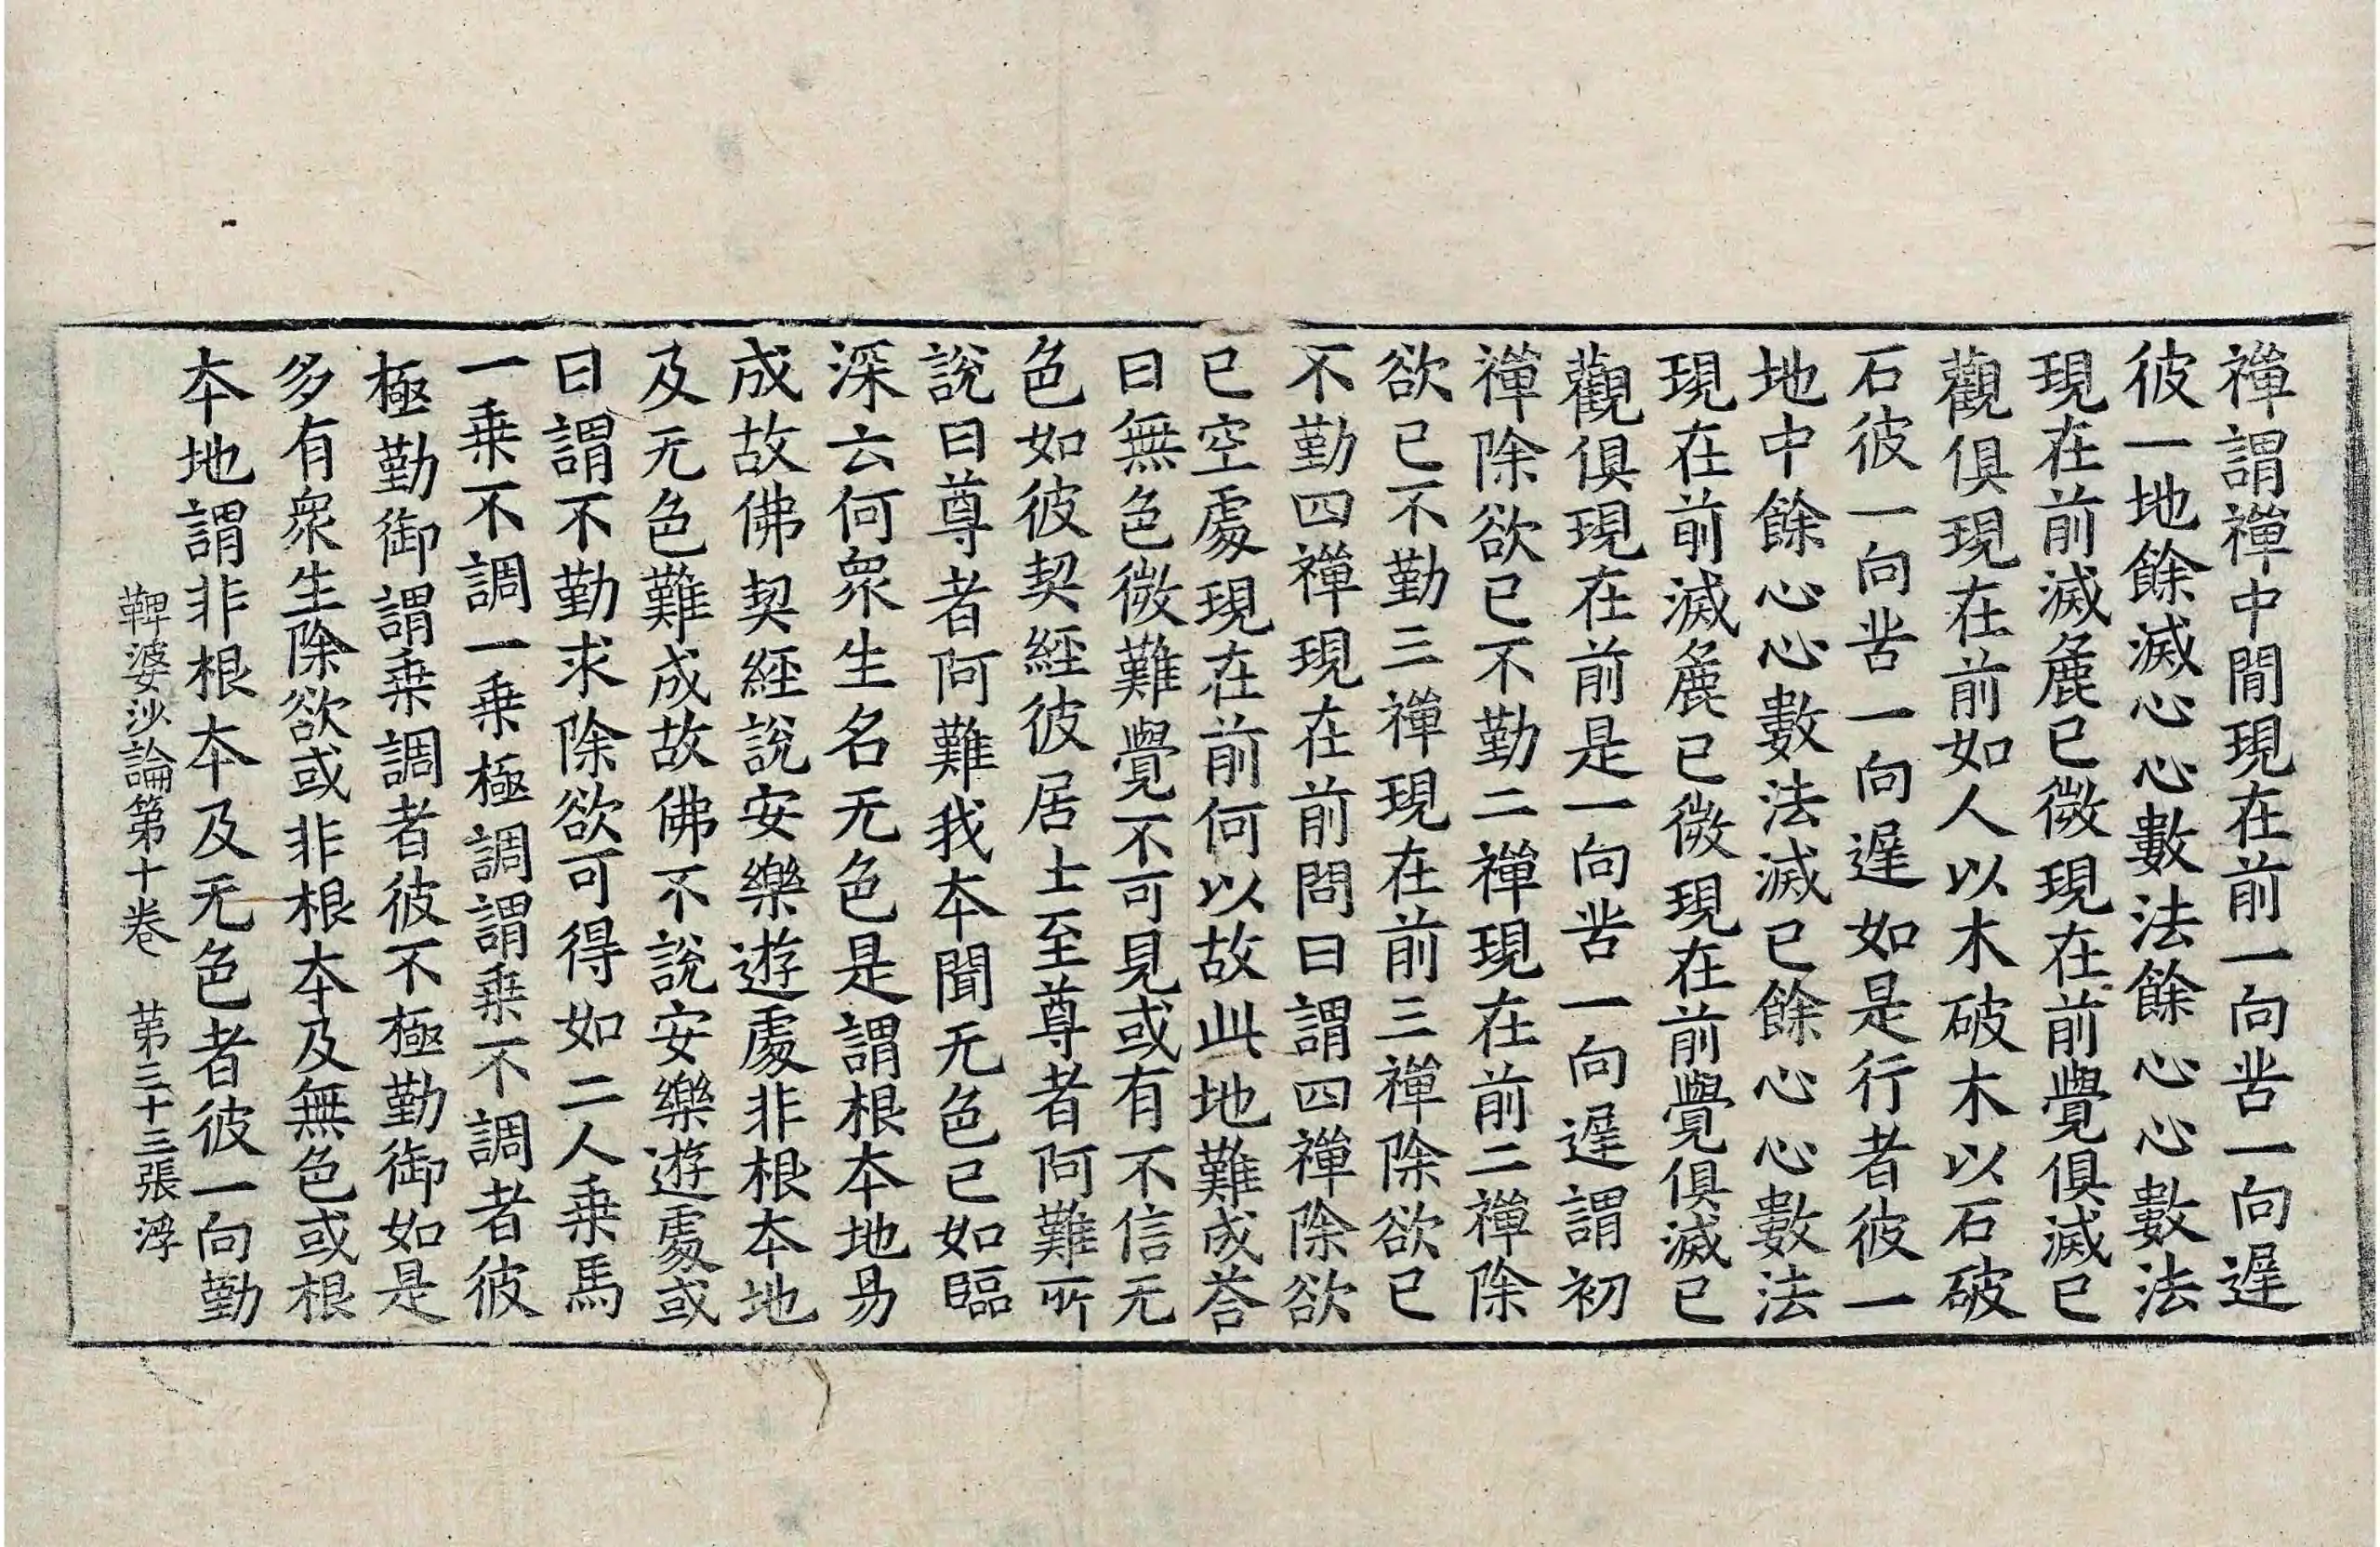 禪謂禪中間現在前一向苦一向遅
彼一地餘滅心心數法餘心心數法
現在前滅麁已微現在前覺俱滅已
觀俱現在前如人以木破木以石破
石彼一向苦一向遅如是行者彼一
地中餘心心數法滅已餘心心數法
現在前滅麁已微現在前覺俱滅已
觀俱現在前是一向苦一向遅謂初
禪除欲已不勤二禪現在前二禪除
欲已不勤三禪現在前三禪除欲已
不勤四禪現在前問曰謂四禪除欲
已空處現在前何以故此地難成荅
曰無色微難覺不可見或有不信无
色如彼契經彼居士至尊者阿難所
說曰尊者阿難我本聞无色已如臨
深云何衆生名无色是謂根本地易
成故佛契經說安樂遊處非根本地
及无色難成故佛不說安樂遊處或
曰謂不勤求除欲可得如二人乗馬
一乗不調一乗極調謂乗不調者彼
極勤御謂乗調者彼不極勤御如是
多有衆生除欲或非根本及無色或根
本地謂非根本及无色者彼一向勤
鞞婆沙論第十卷　第三十三張　浮